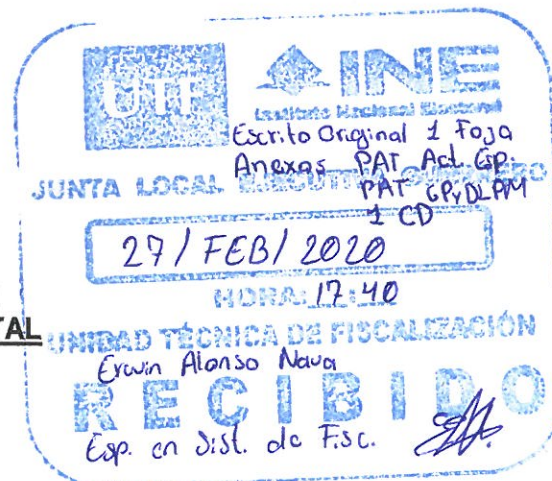 UTF INE
Instituto Nacional Electoral
Escrito Original 1 Foja
Anexos PAT Act. Esp.
JUNTA LOCAL EJECUTIVA GUERRERO
PAT GPyDLPM
1 CD
27/FEB/2020
HORA: 17:40
TAL
UNIDAD TÉCNICA DE FISCALIZACIÓN
Erwin Alonso Nava
RECIBIDO
Esp. en Sist. de Fisc.